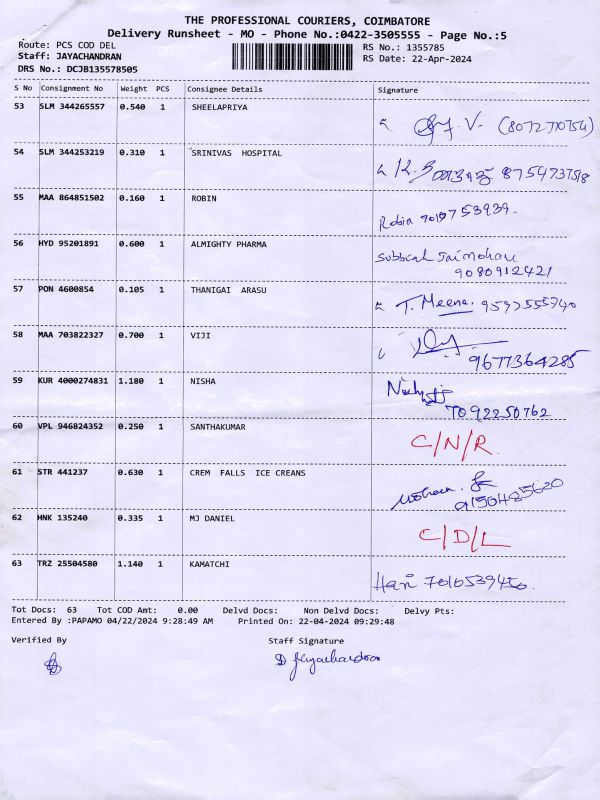 THE PROFESSIONAL COURIERS, COIMBATORE
Delivery Runsheet - MO - Phone No.:0422-3505555 - Page No.:5
Route: PCS COD DEL RS No.: 1355785
Staff: JAYACHANDRAN RS Date: 22-Apr-2024
DRS No.: DCJB135578505
S No Consignment No Weight PCS Consignee Details Signature
53 SLM 344265557 0.540 1 SHEELAPRIYA
54 SLM 344253219 0.310 1 SRINIVAS HOSPITAL
55 MAA 864851502 0.160 1 ROBIN
Robin
56 HYD 95201891 0.600 1 ALMIGHTY PHARMA
9080912421
57 PON 4600854 0.105 1 THANIGAI ARASU
T. Meena.
58 MAA 703822327 0.700 1 VIJI
9677364285
59 KUR 4000274831 1.180 1 NISHA
7092250762
60 VPL 946824352 0.250 1 SANTHAKUMAR
C/N/R.
61 STR 441237 0.630 1 CREM FALLS ICE CREANS
62 HNK 135240 0.335 1 MJ DANIEL
C/D/L
63 TRZ 25504580 1.140 1 KAMATCHI
Hari
Tot Docs: 63 Tot COD Amt: 0.00 Delvd Docs: Non Delvd Docs: Delvy Pts:
Entered By :PAPAMO 04/22/2024 9:28:49 AM Printed On: 22-04-2024 09:29:48
Verified By Staff Signature
D Jeyachandran